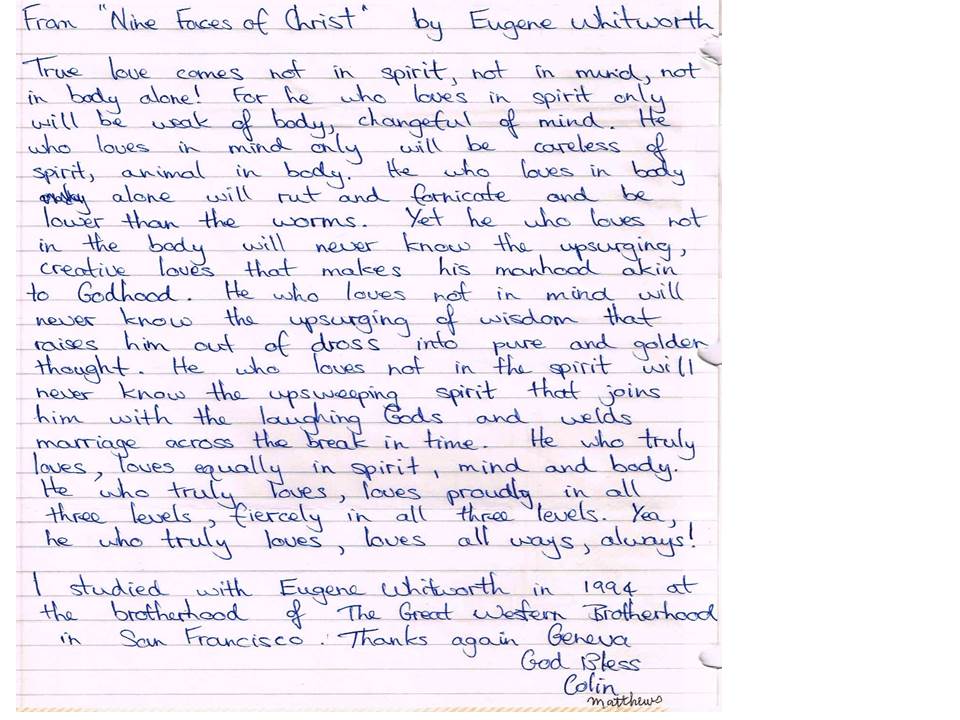 From "Nine Faces of Christ" by Eugene Whitworth
True love comes not in spirit, not in mind, not
in body alone! For he who loves in spirit only
will be weak of body, changeful of mind. He
who loves in mind only will be careless of
spirit, animal in body. He who loves in body
alone will rut and fornicate and be
lower than the worms. Yet he who loves not
in the body will never know the upsurging,
creative loves that makes his manhood akin
to Godhood. He who loves not in mind will
never know the upsurging of wisdom that
raises him out of dross into pure and golden
thought. He who loves not in the spirit will
never know the upsweeping spirit that joins
him with the laughing Gods and welds
marriage across the break in time. He who truly
loves, loves equally in spirit, mind and body.
He who truly loves, loves proudly in all
three levels, fiercely in all three levels. Yea,
he who truly loves, loves all ways, always!
I studied with Eugene Whitworth in 1994 at
the brotherhood of The Great Western Brotherhood
in San Francisco. Thanks again Geneva
God Bless
Colin
Matthews